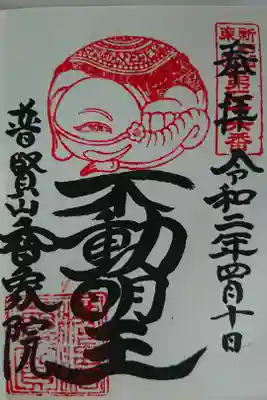 奉拝
令和二年四月十日
不動明王
普賢山香家院